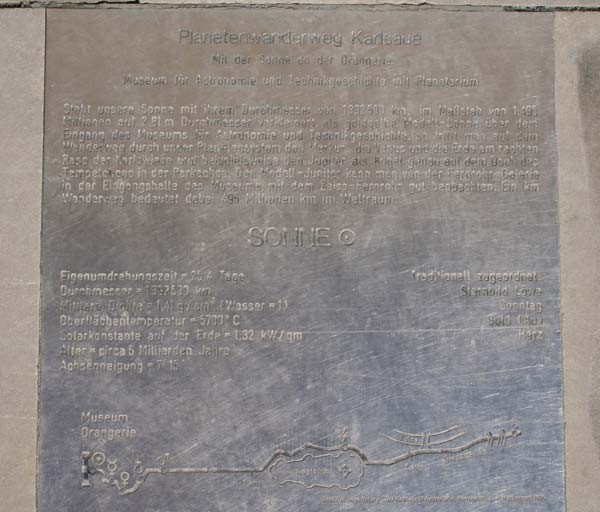 Planetenwanderweg Karlsaue
Mit der Sonne an der Orangerie
Museum für Astronomie und Technikgeschichte mit Planetarium
Steht unsere Sonne mit ihrem Durchmesser von 1392530 km, im Maßstab von 1:495
Millionen auf 2,81 m Durchmesser verkleinert, als goldgelbe Modell-Sonne über dem
Eingang des Museums für Astronomie und Technikgeschichte, so trifft man auf dem
Wanderweg durch unser Planetensystem den Merkur, die Venus und die Erde am rechten
Rand der Karlswiese und beispielsweise den Jupiter als Kugel genau auf dem Dach des
Tempelchens in der Parkachse. Den Modell-Jupiter kann man von der Fernrohr-Galerie
in der Eingangshalle des Museums mit dem Zeiss-Fernrohr gut beobachten. Ein km
Wanderweg bedeutet dabei 495 Millionen km im Weltraum.
SONNE ☉
Eigenumdrehungszeit = 25,4 Tage
Durchmesser = 1392530 km
Mittlere Dichte = 1,41 g/cm³ (Wasser = 1)
Oberflächentemperatur = 5700° C
Solarkonstante auf der Erde = 1,32 kW/qm
Alter = circa 5 Milliarden Jahre
Achsenneigung = 7°15'
Traditionell zugeordnet:
Sternbild Löwe
Sonntag
Gold (Au)
Herz
Museum
Orangerie
1 km
2 km